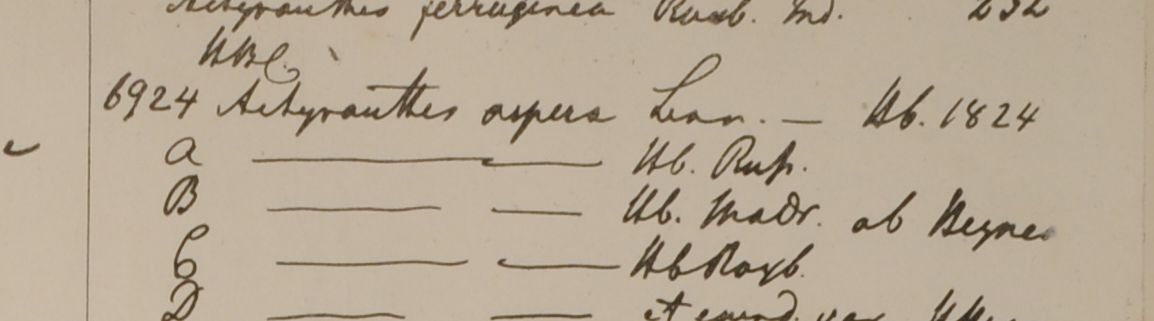 Achyranthes ferruginea Roxb. Ind. 232
HBC.
6924 Achyranthes aspera Linn. — Hb. 1824
a ——— —— Hb. Russ.
B ——— —— Hb. Madr. ab Heyne
C ——— —— Hb Roxb.
D ——— ——